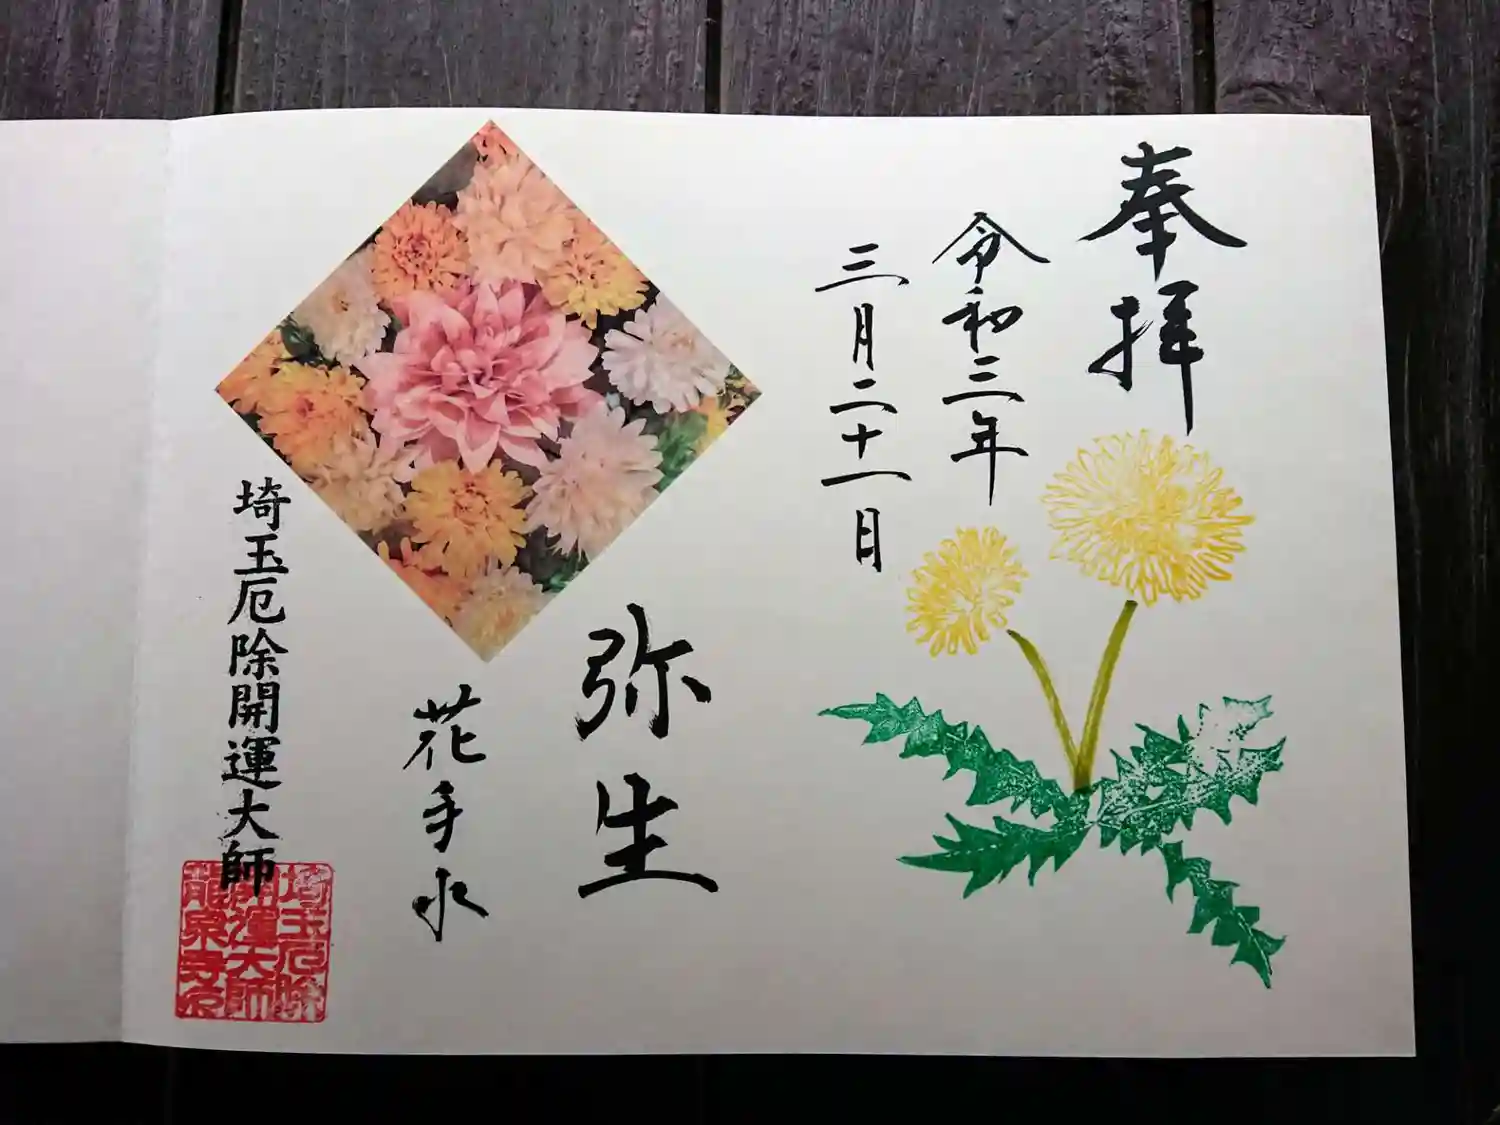 奉拝
令和三年
三月二十一日
弥生
花手水
埼玉厄除開運大師
埼玉厄除
開運大師
龍泉寺